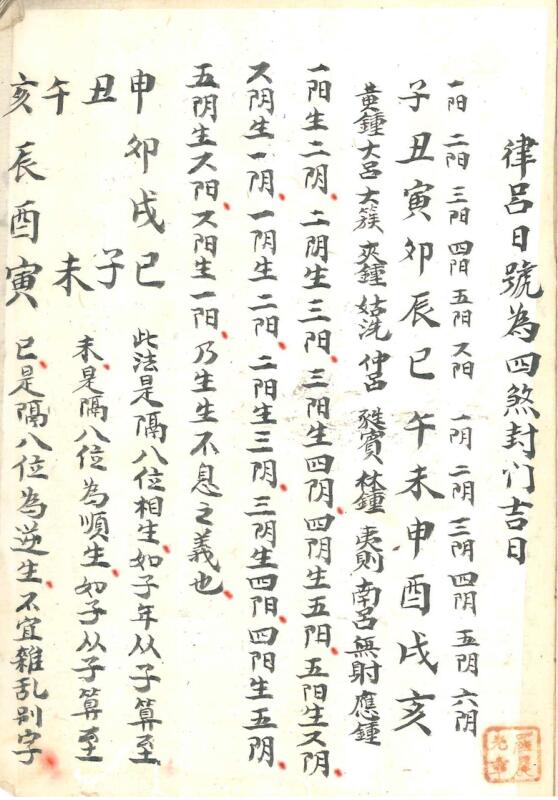 律呂日號為四煞封门吉日
一阳 二阳 三阳 四阳 五阳 六阳 一阴 二阴 三阴 四阴 五阴 六阴
子 丑 寅 卯 辰 巳 午 未 申 酉 戌 亥
黃鍾 大呂 大簇 夾鍾 姑洗 仲呂 蕤賓 林鍾 夷則 南呂 無射 應鍾
一阳生二阴 二阴生三阳 三阳生四阴 四阴生五阳 五阳生六阴
六阴生一阴 一阴生二阳 二阳生三阴 三阴生四阳 四阳生五阴
五阴生六阳 六阳生一阳 乃生生不息之義也
申卯戌巳
丑 子
午 未
亥辰酉寅
此法是隔八位相生 如子年从子算至
未是隔八位為順生 如子从子算至
巳是隔八位為逆生 不宜雜乱别字